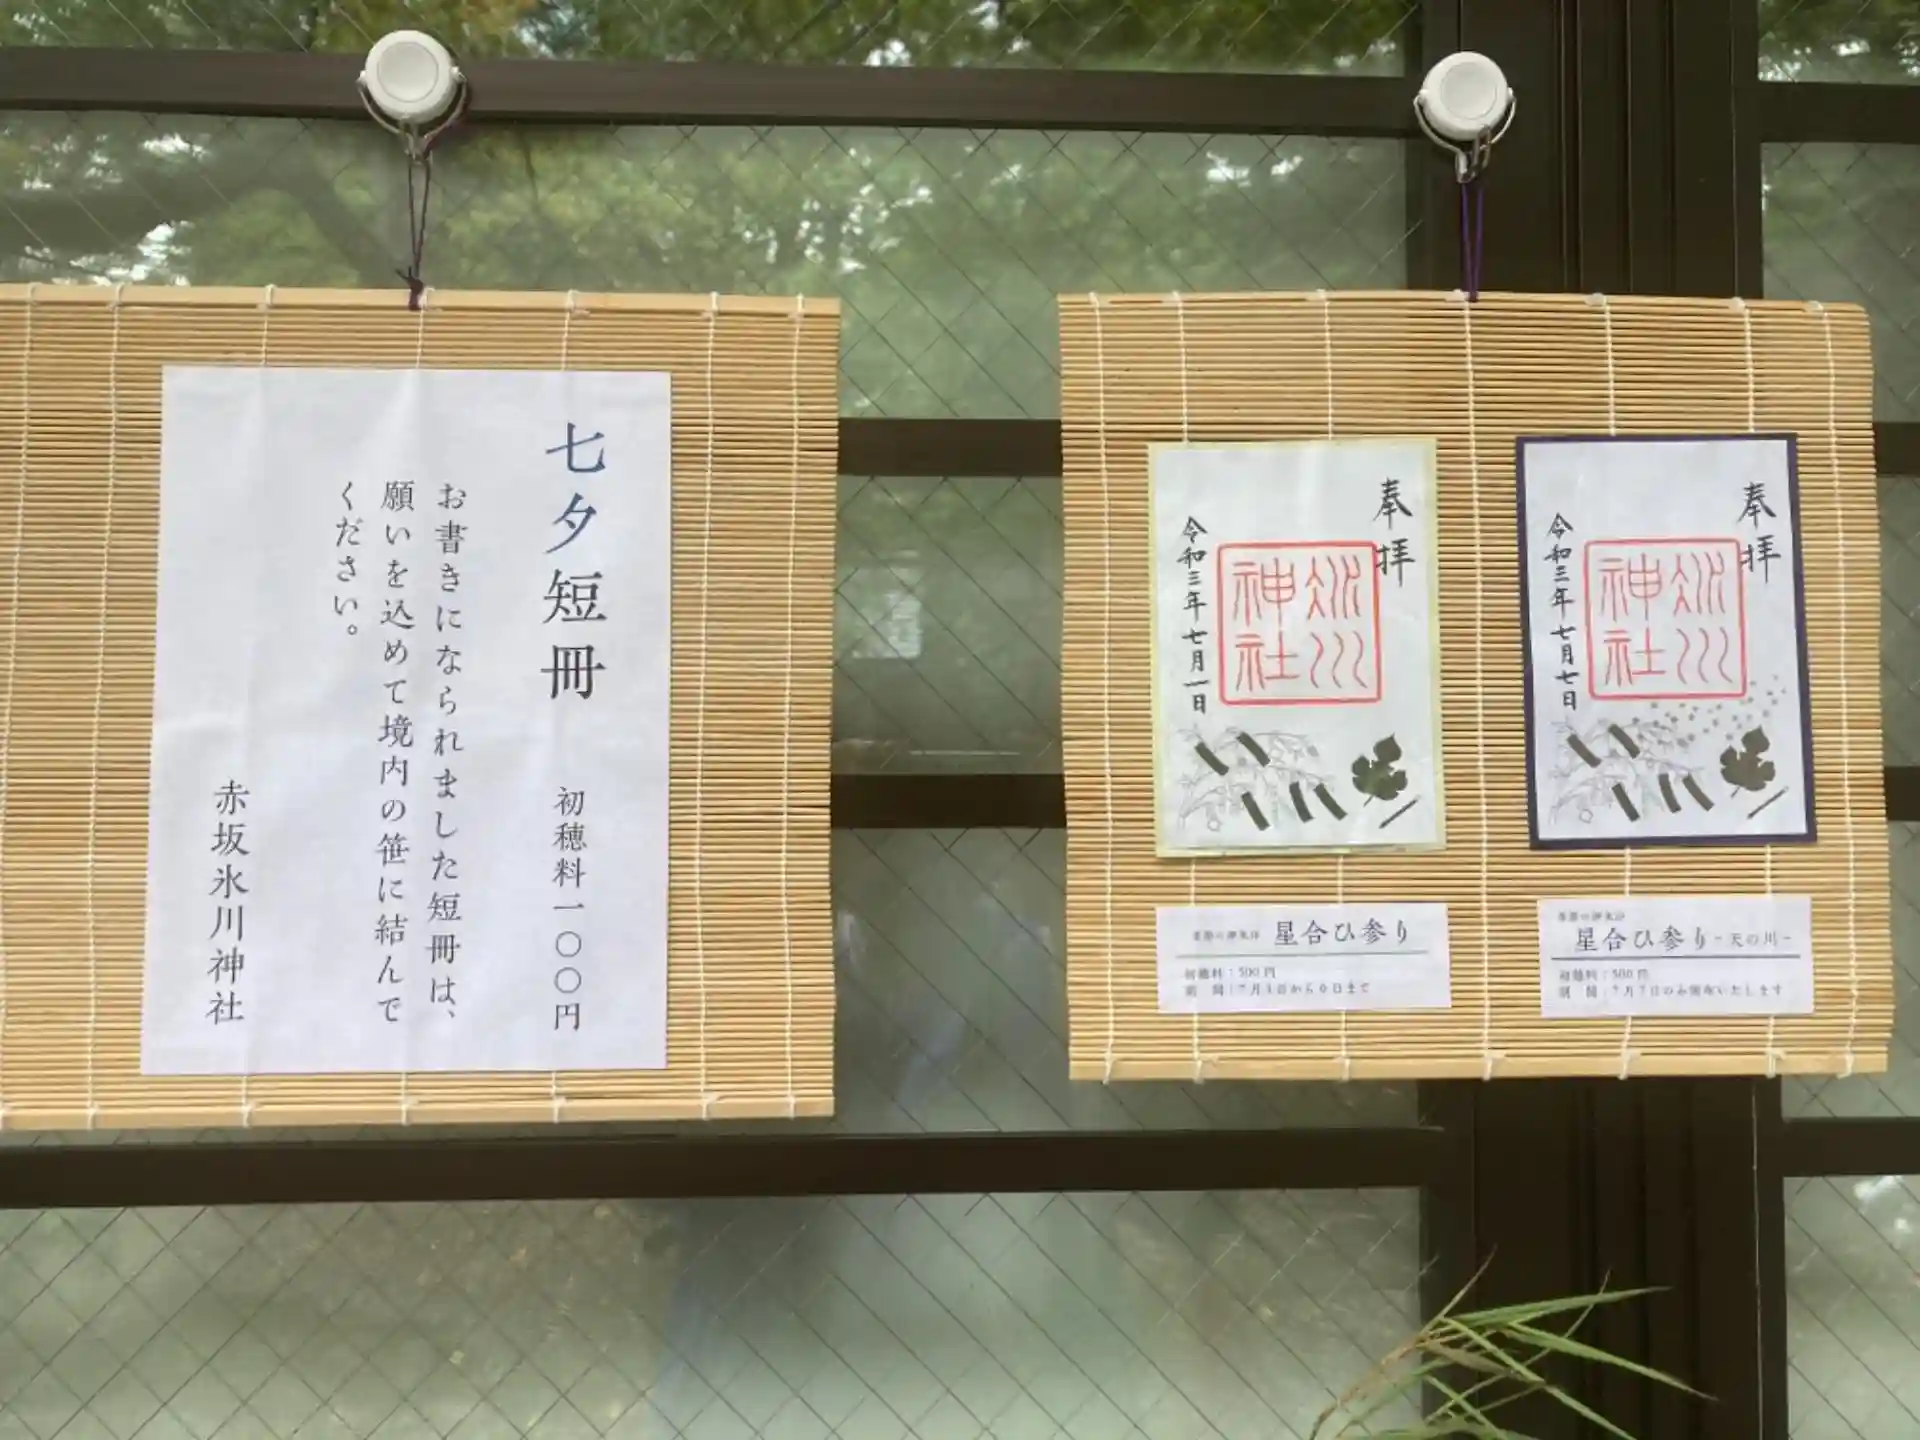 七夕短冊 初穂料一〇〇円
お書きになられました短冊は、
願いを込めて境内の笹に結んで
ください。
赤坂氷川神社
奉拝
氷川
神社
令和三年七月一日
季節の御朱印 星合ひ参り
初穂料:500円
期 間:7月1日から6日まで
奉拝
氷川
神社
令和三年七月七日
季節の御朱印
星合ひ参り-天の川-
初穂料:500円
期 間:7月7日のみ頒布いたします